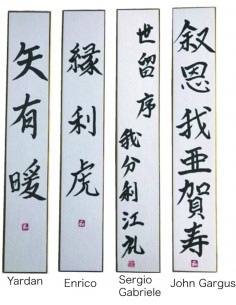 矢有暖
縁利虎
世留序
我分利江礼
叙恩我亜賀寿
Yardan
Enrico
Sergio
Gabriele
John Gargus